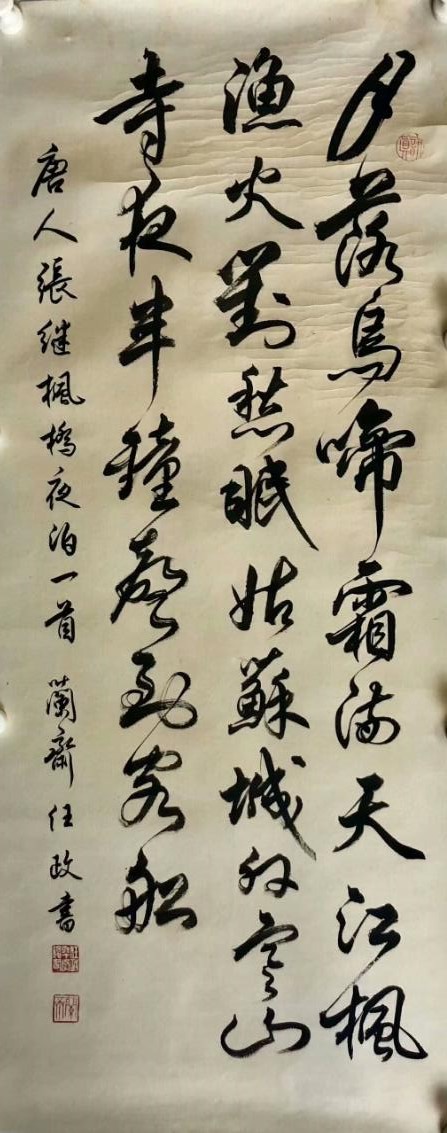 月落烏啼霜滿天江楓
漁火對愁眠姑蘇城外寒山
寺夜半鐘聲到客船
唐人張继楓橋夜泊一首 蘭齋任政書